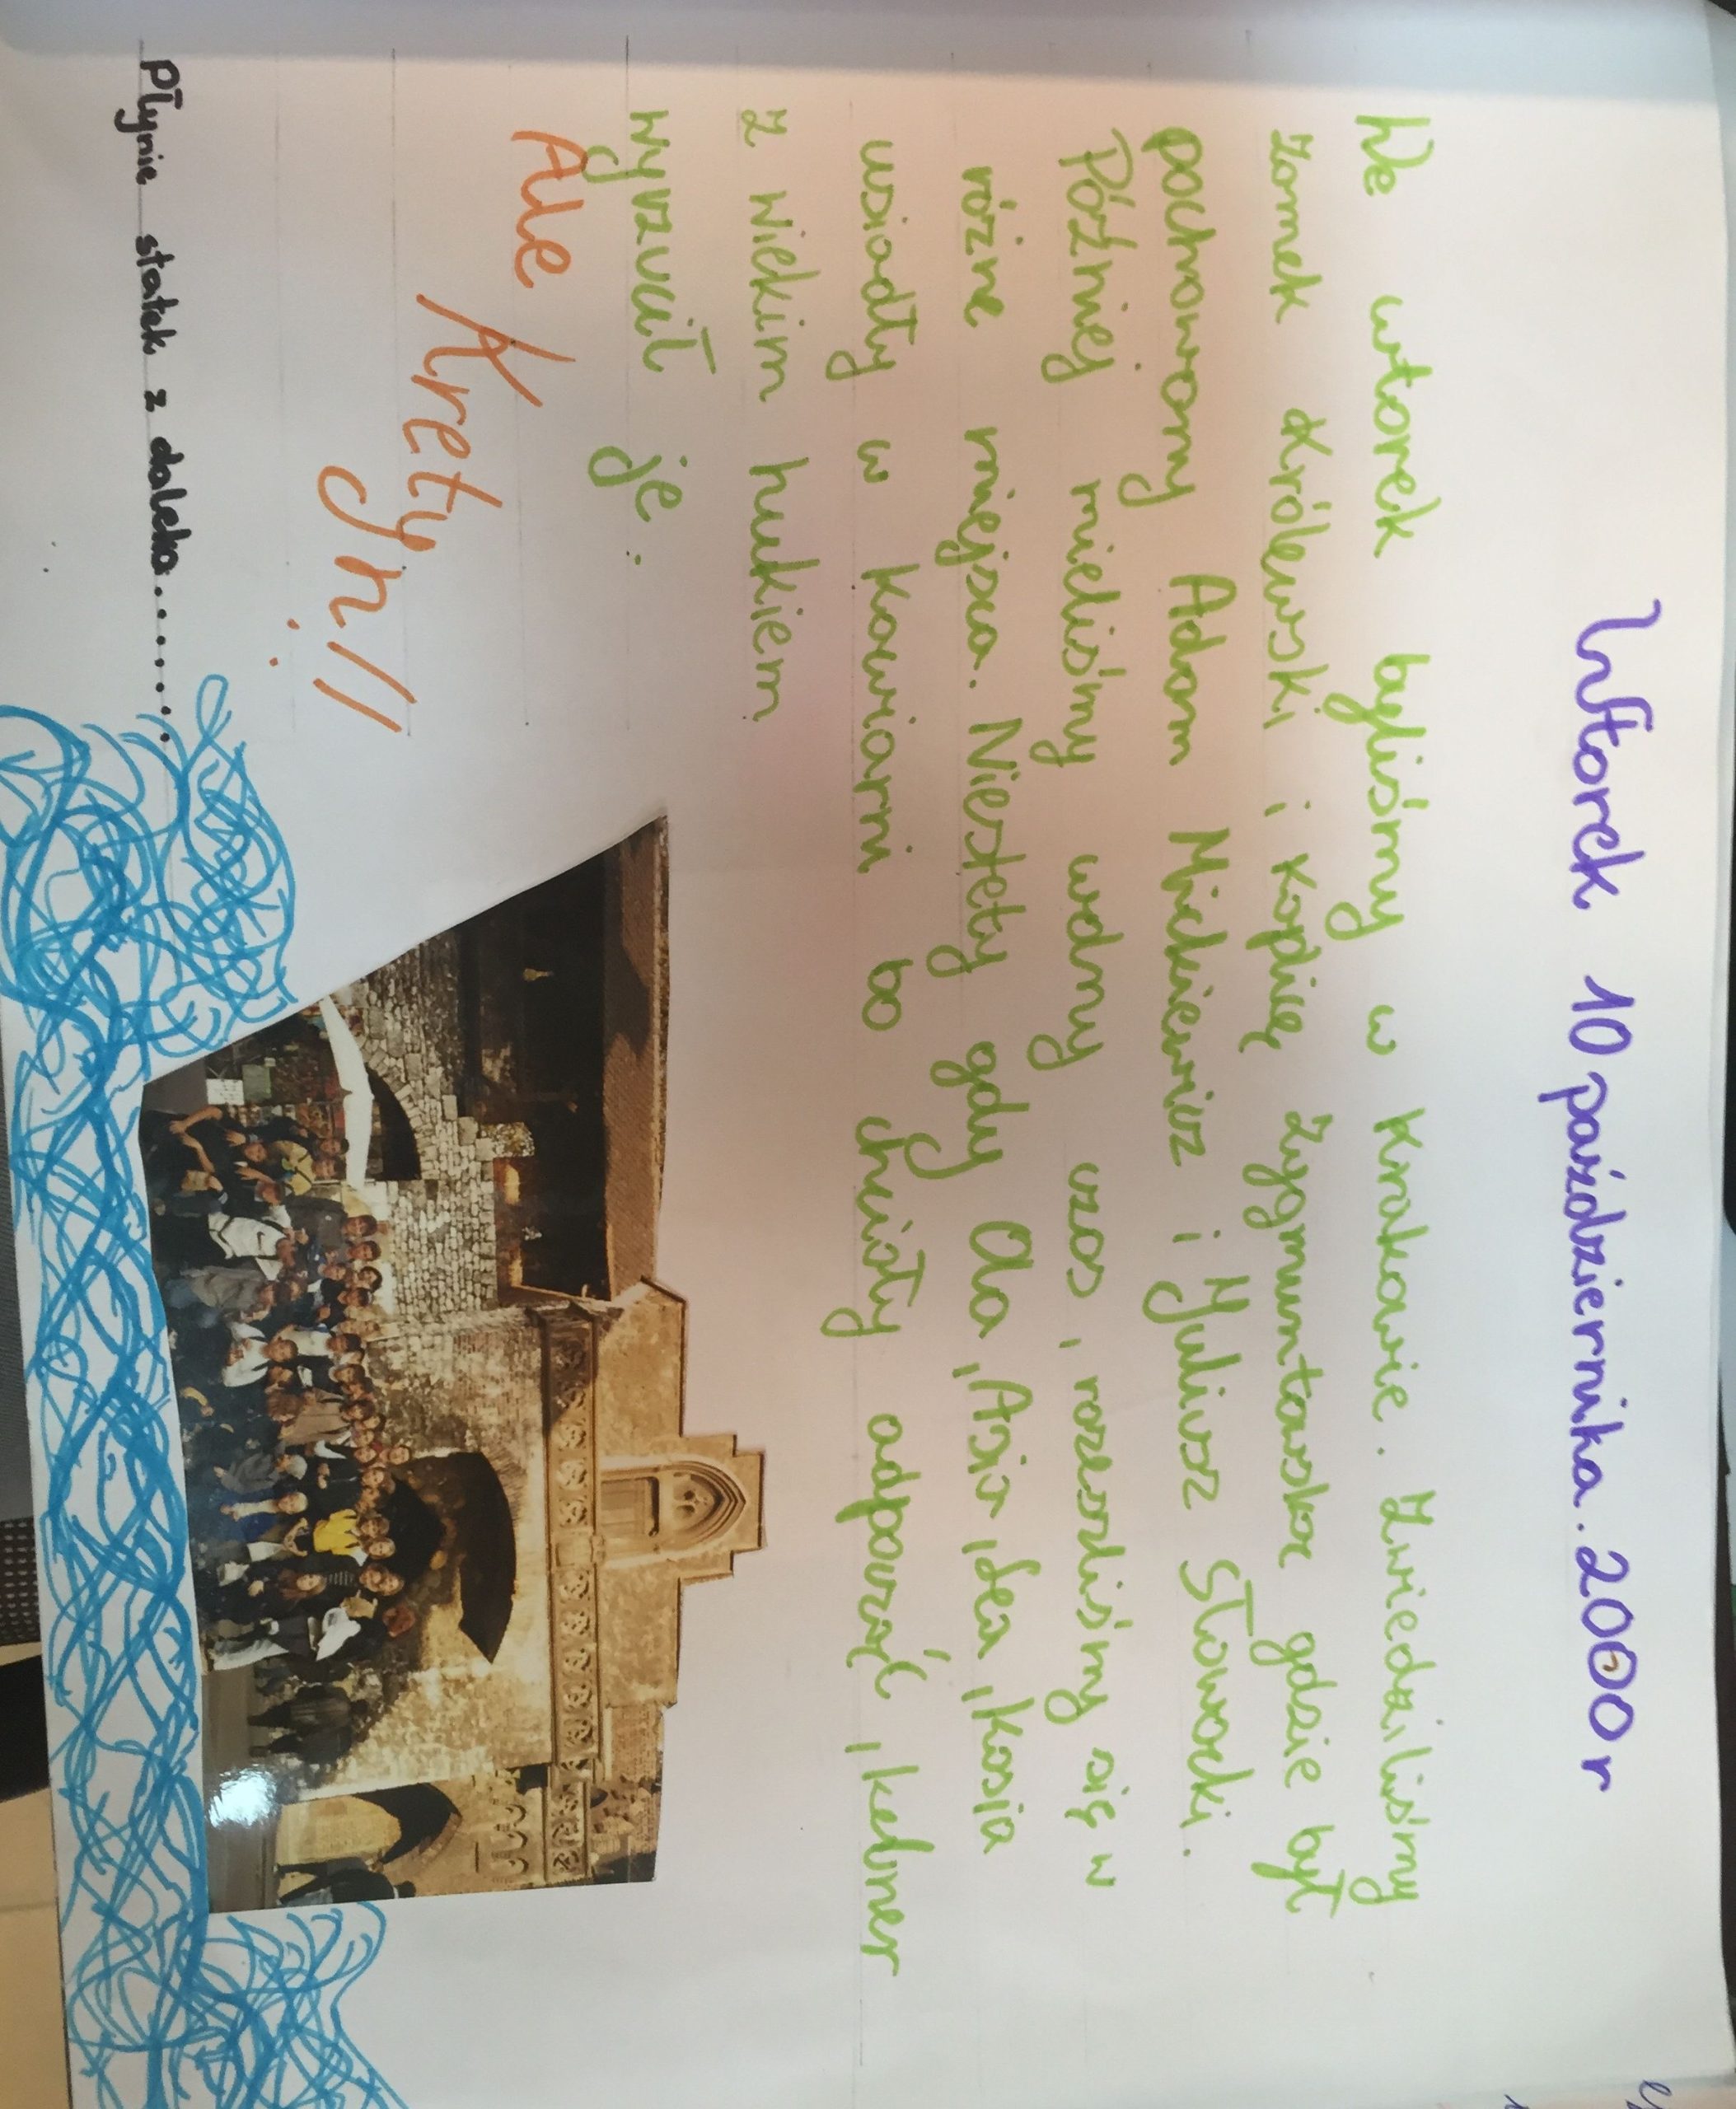 Wtorek 10 października. 2000 r
We wtorek byliśmy w Krakowie. Zwiedziliśmy
zamek Królewski i kopię Zygmuntowska gdzie był
pochowony Adam Mickiewicz i Juliusz Słowacki.
Później mieliśmy wolny czas, rozeszliśmy się w
różne miejsca. Niestety gdy Ola, Asia, Lea, Kasia
usiadły w kawiarni bo chciały odpocząć, kelner
z wiekim hukiem
wyrzucił je.
Ale
Kretyn!!
Płynie statek z daleka.......